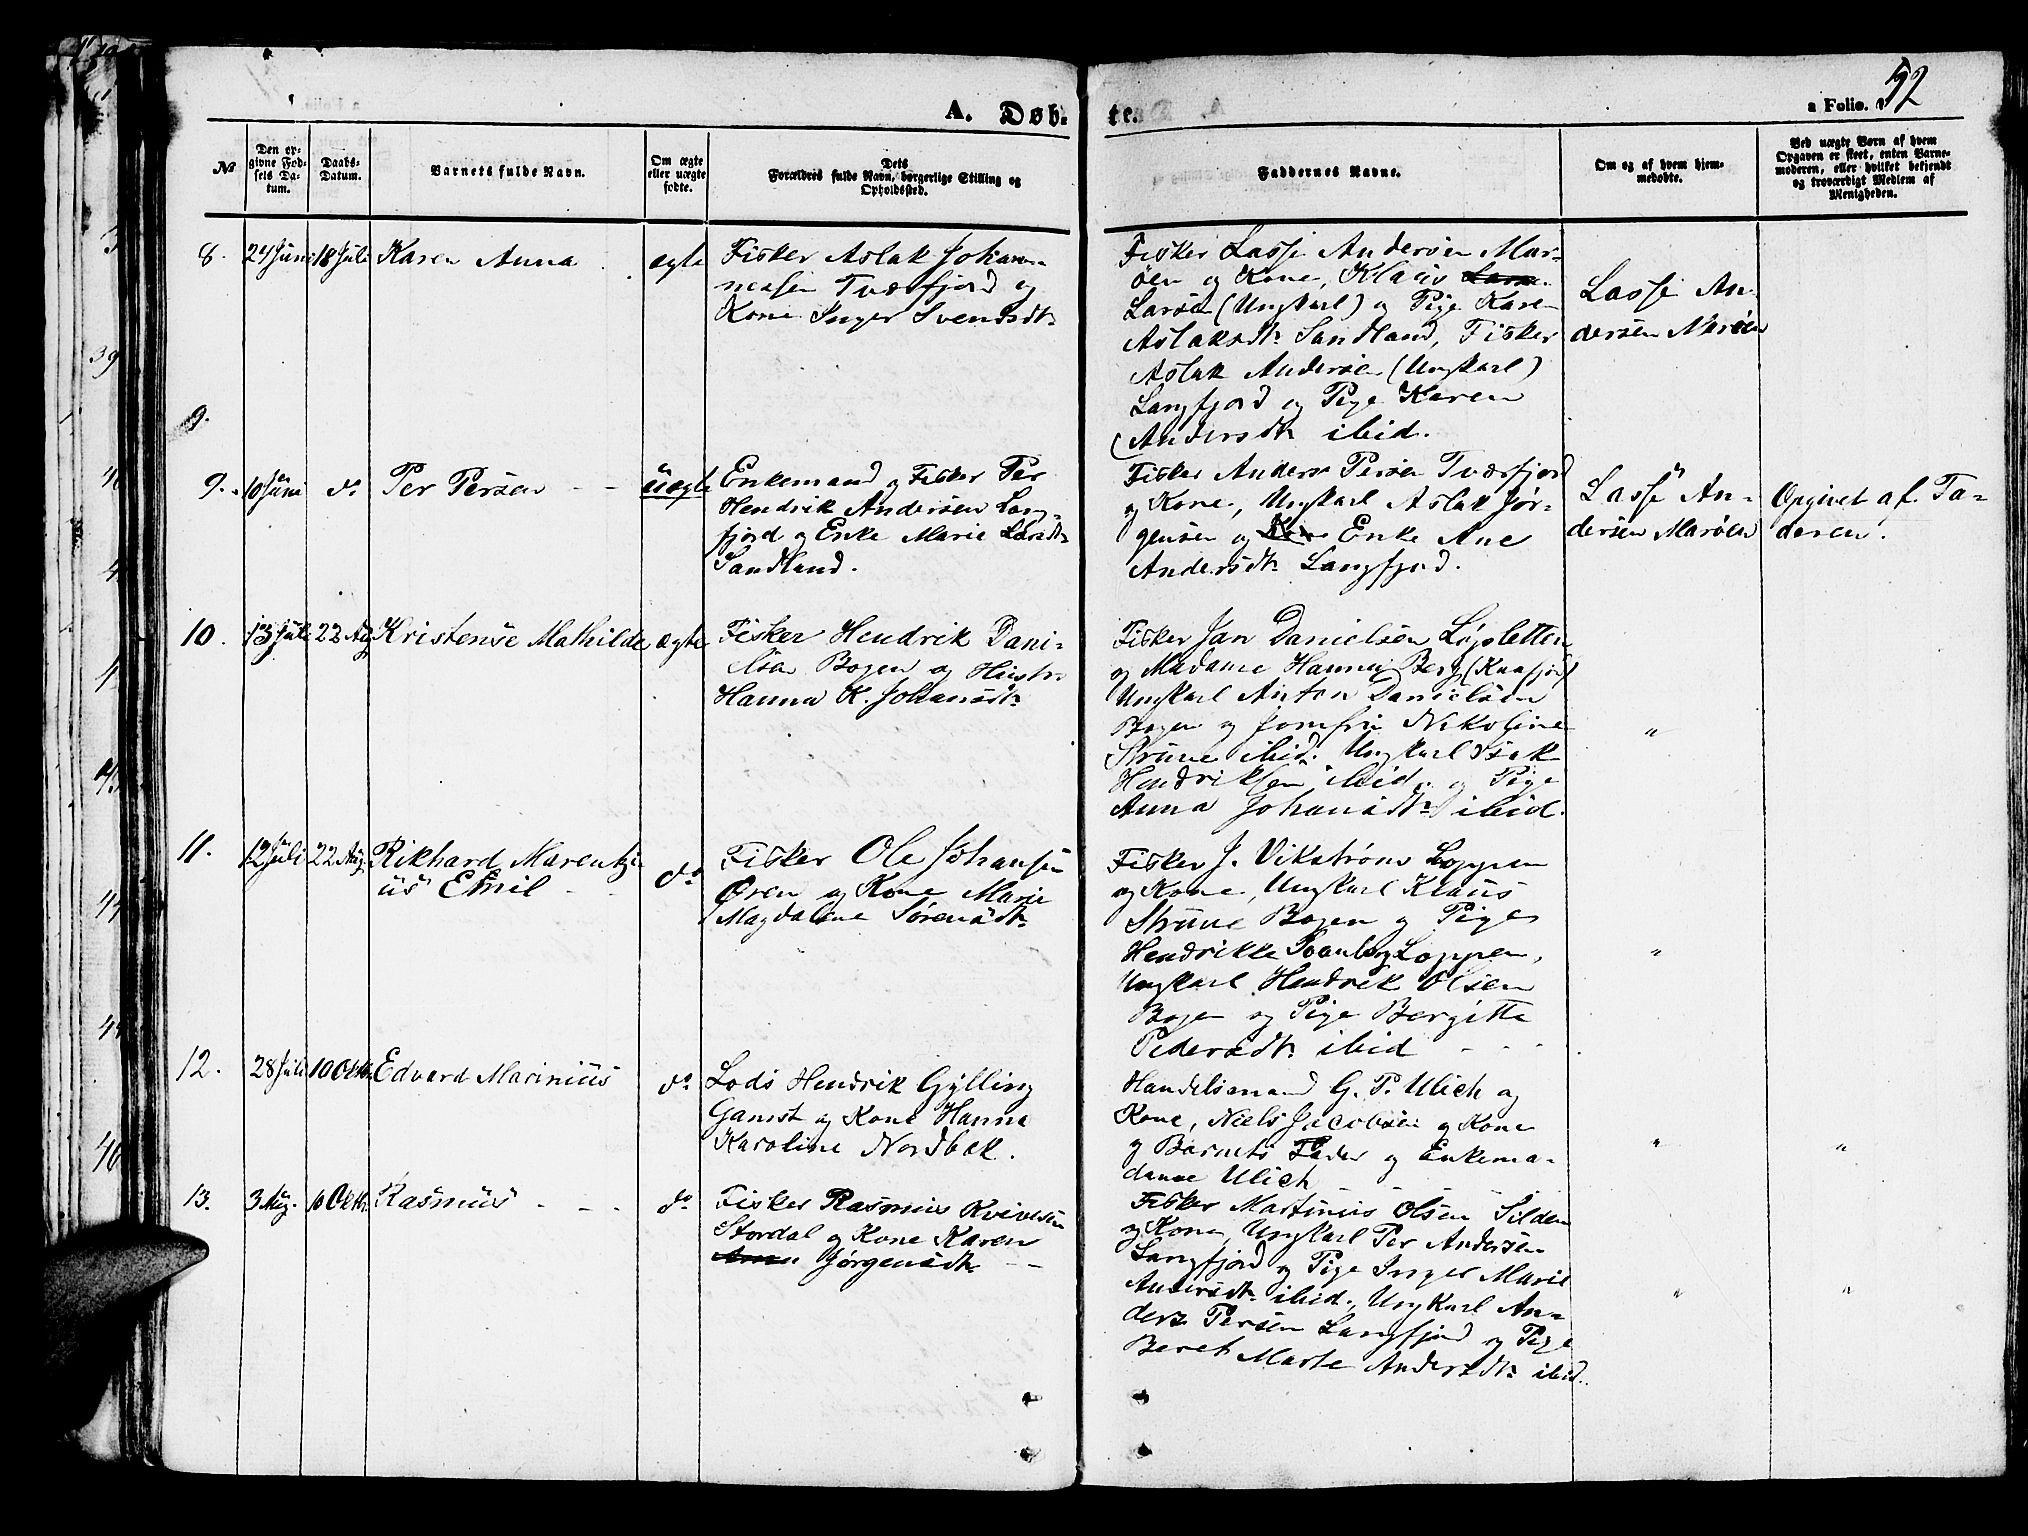 A. Døb-
te.
a Folio. 92
№
Den op-
givne Fød-
sels Da-
tum.
Daabs-
Datum.
Barnets fulde Navn.
Om ægte
eller uægte
fødte.
Dets
Forældres fulde Navn, borgerlige Stilling og
Opholdssted.
Faddernes Navne.
Om og af hvem hjem-
medøbte.
Ved uægte Børn af hvem
Opgaven er skeet, enten Barne-
moderen, eller hvilket bekjendt
og troværdigt Medlem af
Menigheden.
8. 24 Juni 18 Juli Karen Anna ægte
Fisker Aslak Johan-
nessen Tværfjord og
Kone Inger Svendsdtr
Fisker Lasse Andersen Mar-
øen og Kone, Klaus
Larsen (Ungkarl) og Pige Karen
Aslaksdtr Sandland, Fisker
Aslak Andersen (Ungkarl)
Langfjord og Pige Karen
Andersdtr ibid.
Lasse An-
dersen Marøen
9.
9. 10 Juni do Per Persen uægte
Enkemand og Fisker Per
Hendrik Andersen Lang-
fjord og Enke Marie Larsdtr
Sandland.
Fisker Anders Persen Tværfjord
og Kone, Ungkarl Aslak Jør-
gensen og Kone Enke Ane
Andersdtr Langfjord.
Lasse An-
dersen Marøen
Opgivet af Fa-
deren.
10. 13 Juli 22 Aug Kristense Mathilde ægte
Fisker Hendrik Dani-
elsen Bogen og Hustr.
Hanna K. Johansdtr
Fisker Jan Danielsen Løgsletten
og Madame Hanna Berg (Kaafjord)
Ungkarl Anton Danielsen
Bogen og Jomfru Nikoline
Struve ibid. Ungkarl Isak
Hendriksen ibid. og Pige
Anna Johansdtr ibid.
"
11. 12 Juli 22 Aug. Rikhard Marentzi-
us Emil do
Fisker Ole Johansen
Øren og Kone Marie
Magdalene Sørensdtr
Fisker J. Vikstrøm Loppen
og Kone, Ungkarl Klaus
Struve Bogen og Pige
Hendrikke Svanberg Loppen,
Ungkarl Hendrik Olsen
Bogen og Pige Bergitte
Pedersdtr ibid
"
12. 28 Juli 10 Oktbr Edvard Marinius do
Lods Hendrik Gylling
Gamst og Kone Hanna
Karoline Nordbæk.
Handelsmand G. P. Ulich og
Kone, Niels Jacobsen og Kone
og Barnets Fader og Enkema-
dame Ulich
" "
13. 3 Aug. 10 Oktbr Rasmus do
Fisker Rasmus Kvivesen
Stordal og Kone Karen
Jørgensdtr
Fisker Martinus Olsen Silden
og Kone, Ungkarl Per Andersen
Langfjord og Pige Inger Marie
Andersdtr ibid., Ungkarl An-
ders Persen Langfjord og Pige
Beret Marte Andersdtr ibid.
" "